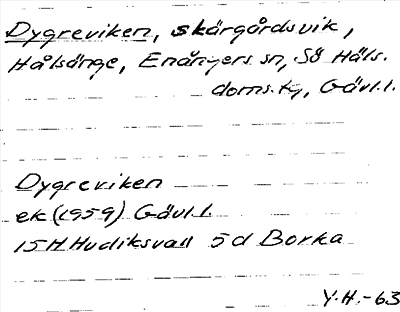 Dygreviken, skärgårdsvik,
Hålsänge, Enångers sn, Sö Häls.
doms.ty, Gävl.l.
Dygreviken
ek (1959) Gävl.l.
15H Hudiksvall 5d Borka
Y.H.-63